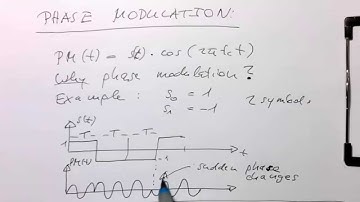 PHASE MODULATION:
PM(t) = s(t) · cos(2πfct)
Why phase modulation?
Example : s0 = 1 2 symbols
s1 = -1
s(t)
-T- -T- -T-
1
t
-1
PM(t)
sudden phase
changes